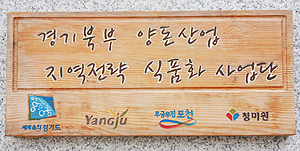 경기북부 양돈산업
지역전략 식품화 사업단
세계속의 경기도 Yangju 무궁무진 포천 청미원